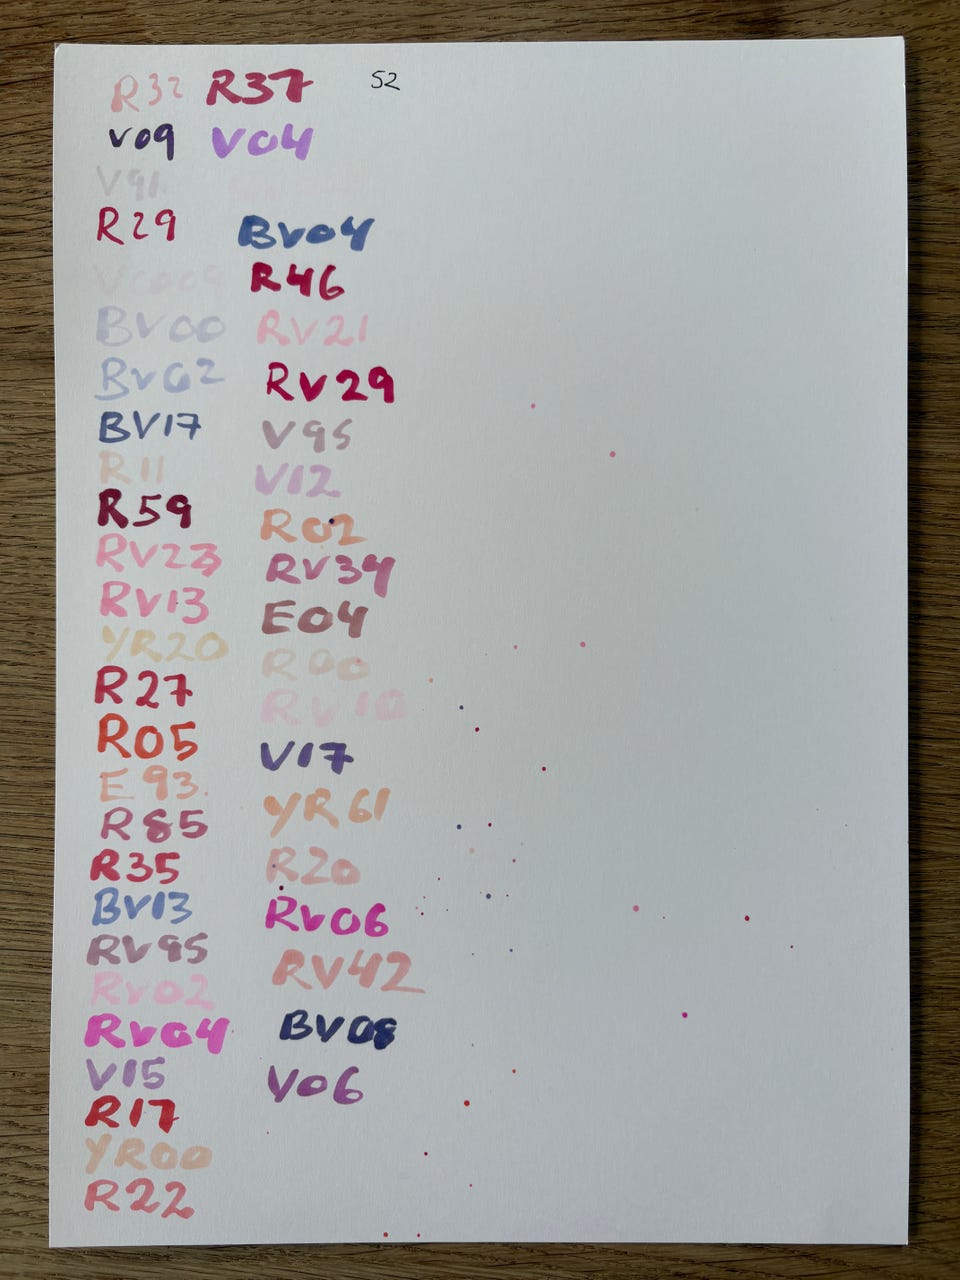 R32 R37 52
V09 V04
V91
R29 BV04
V0009 R46
BV00 RV21
BV02 RV29
BV17 V95
R11 V12
R59 R02
RV23 RV34
RV13 E04
YR20 R00
R27 RV10
R05 V17
E93 YR61
R85 R20
R35 RV06
BV13 RV42
RV95
RV02
RV04 BV08
V15 V06
R17
YR00
R22